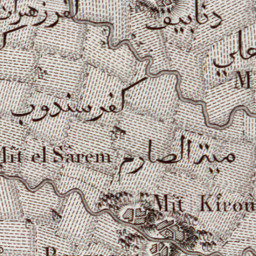 كفر زهران
دنابيق
علي
M
كفر سندوب
Mit el Sârem ميت الصارم
Mit Kirou